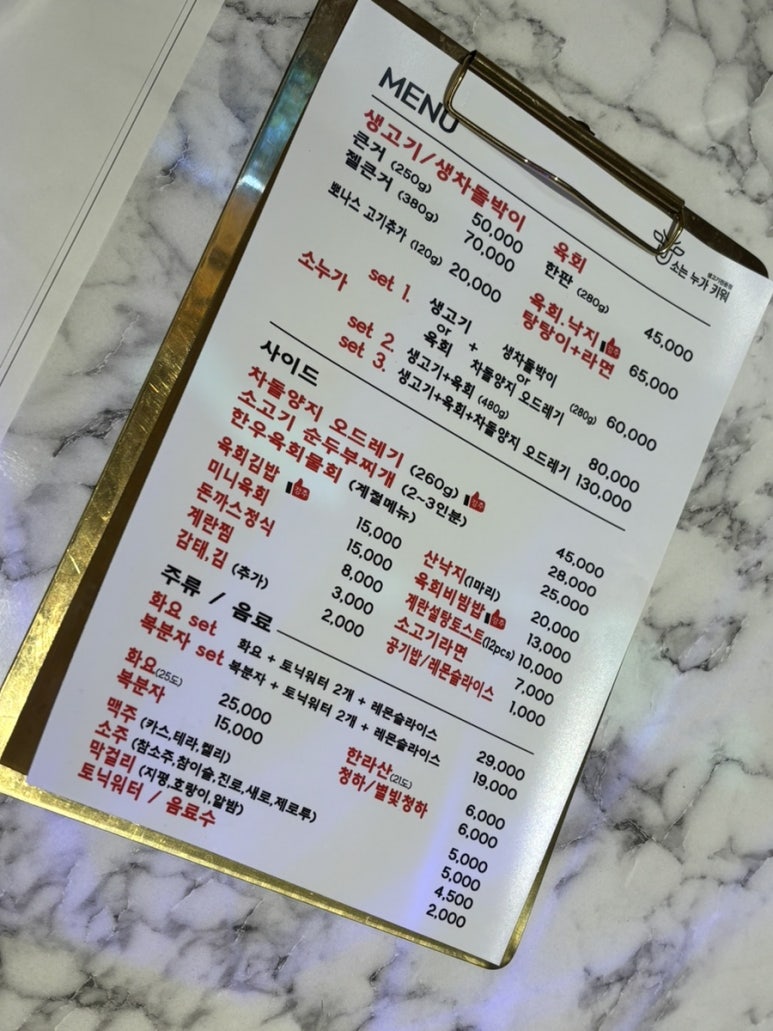 MENU
생고기전문점
소는 누가 키워
생고기/생차돌박이
큰거 (250g) 50,000
젤큰거 (380g) 70,000
뽀나스 고기추가 (120g) 20,000
육회
한판 (280g) 45,000
육회.낙지 강추
탕탕이+라면 65,000
소누가
set 1. 생고기 or 육회 + 생차돌박이 or 차돌양지 오드레기 (280g) 60,000
set 2. 생고기+육회 (480g) 80,000
set 3. 생고기+육회+차돌양지 오드레기 130,000
사이드
차돌양지 오드레기 (260g) 강추 45,000
소고기 순두부찌개 (2~3인분) 28,000
한우육회물회 (계절메뉴) 25,000
육회김밥 15,000
미니육회 강추 15,000
돈까스정식 8,000
계란찜 3,000
감태,김 (추가) 2,000
산낙지(1마리) 20,000
육회비빔밥 강추 13,000
계란설탕토스트(12pcs) 10,000
소고기라면 7,000
공기밥/레몬슬라이스 1,000
주류 / 음료
화요 set 화요 + 토닉워터 2개 + 레몬슬라이스 29,000
복분자 set 복분자 + 토닉워터 2개 + 레몬슬라이스 19,000
화요(25도) 25,000
복분자 15,000
한라산(21도) 6,000
청하/별빛청하 6,000
맥주 (카스,테라,켈리) 5,000
소주 (참소주,참이슬,진로,새로,제로투) 5,000
막걸리 (지평,호랑이,알밤) 4,500
토닉워터 / 음료수 2,000